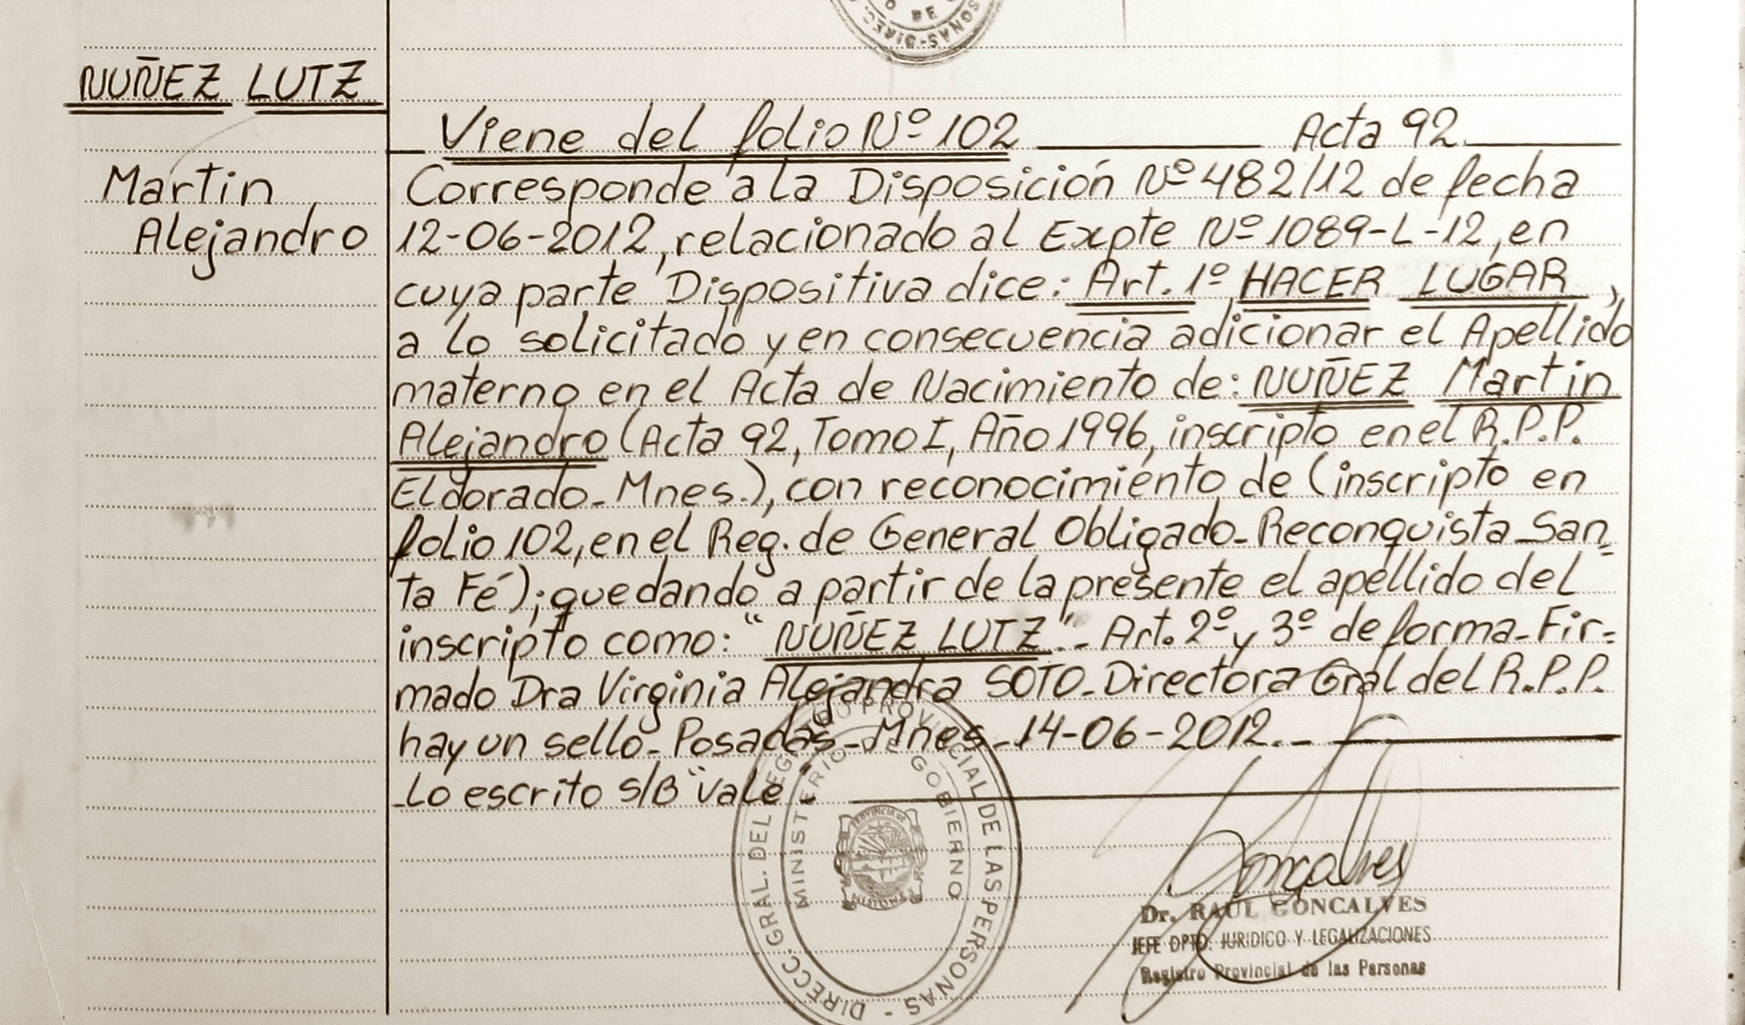 NUÑEZ LUTZ
Martin
Alejandro
Viene del folio Nº 102 Acta 92.
Corresponde a la Disposición Nº 482/12 de fecha
12-06-2012, relacionado al Expte Nº 1089-L-12, en
cuya parte Dispositiva dice: Art. 1º HACER LUGAR,
a lo solicitado y en consecuencia adicionar el Apellido
materno en el Acta de Nacimiento de: NUÑEZ Martin
Alejandro (Acta 92, Tomo I, Año 1996, inscripto en el R.P.P.
Eldorado-Mnes.), con reconocimiento de (inscripto en
folio 102, en el Reg. de General Obligado-Reconquista-San
ta Fé); quedando a partir de la presente el apellido del
inscripto como: "NUÑEZ LUTZ".- Art. 2º y 3º de forma-Fir-
mado Dra Virginia Alejandra SOTO-Directora Gral del R.P.P.
hay un sello-Posadas-Mnes-14-06-2012.-
-Lo escrito S/B "Vale".
DIRECC. GRAL. DEL REGISTRO PROVINCIAL DE LAS PERSONAS -
MINISTERIO DE GOBIERNO
PROVINCIA DE
MISIONES
Goncalves
Dr. RAUL GONCALVES
JEFE DPTO. JURIDICO Y LEGALIZACIONES
Registro Provincial de las Personas